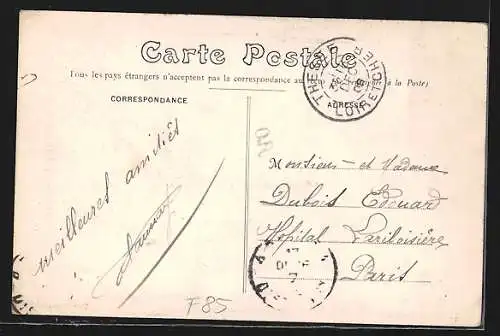 Carte Postale
Tous les pays étrangers n'acceptent pas la correspondance au à la Poste)
CORRESPONDANCE
ADRESSE
LOIR ET CHER
meilleures amitiés
Monsieur et Madame
Dubois Edouard
Hôpital Lariboisière
Paris
F85